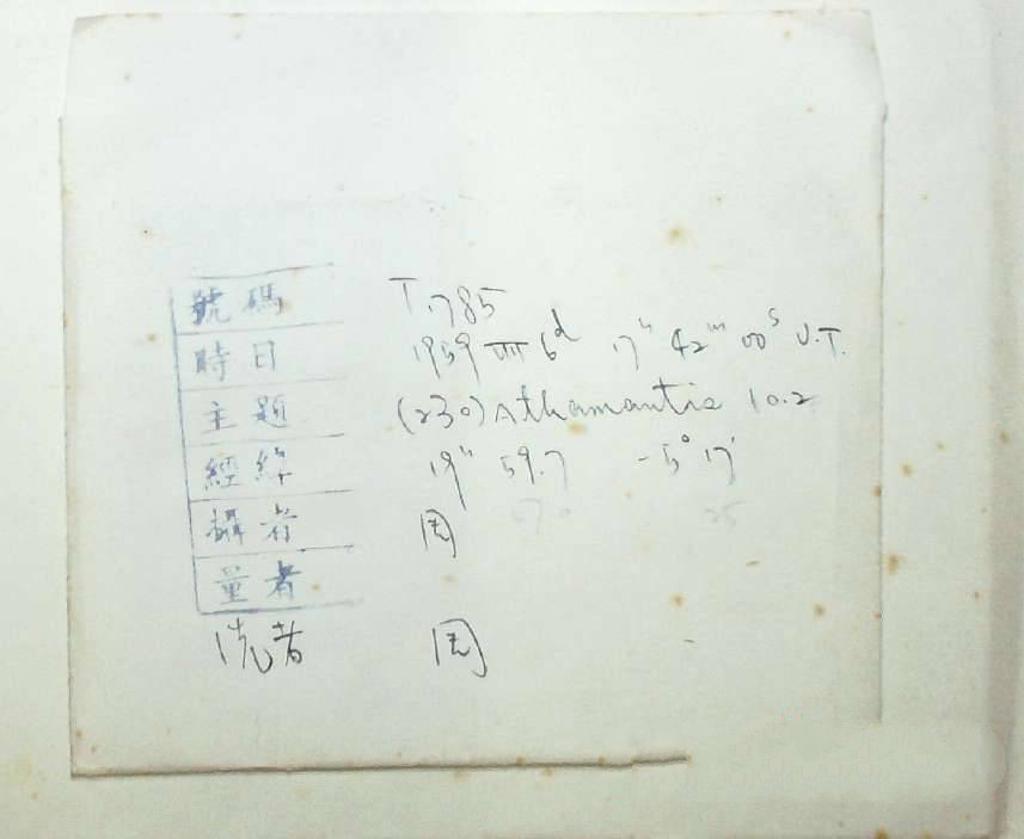 號碼 T.785
時日 1959 VIII 6d 17h 42m 00s U.T.
主題 (230) Athamantis 10.2
經緯 19h 59.7 -5° 17'
攝者 周
量者
洗者 周